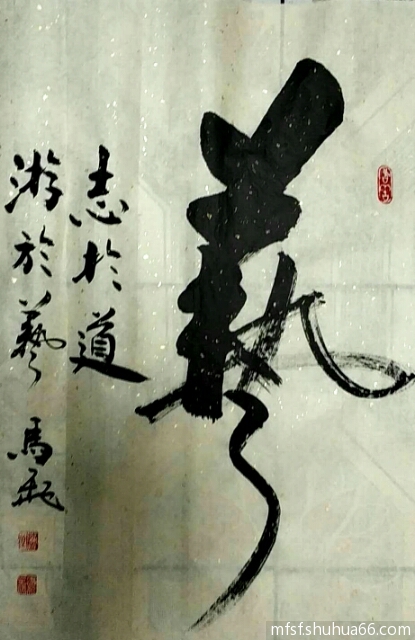 藝
志於道
游於藝 馬
mfsfshuhua66.com